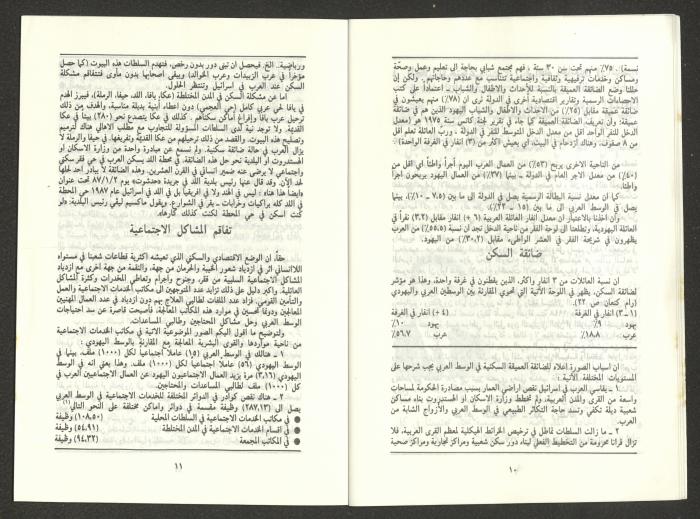 نسمة). ٧٥٪ منهم تحت سن ٣٠ سنة، فهم مجتمع شبابي بحاجة الى تعليم وعمل وصحّة
ومساكن وخدمات ترفيهية وثقافية واجتماعية تتناسب مع عددهم وحاجاتهم. ولكن إن
حللنا وضع الضائقة العميقة بالنسبة للأحداث والاطفال والشباب ــ اعتماداً على كتب
الاحصاءات الرسمية وتقارير اقتصادية أخرى في الدولة نرى ان (٧٨٪) منهم يعيشون في
ضائقة عميقة مقابل (٢٥٪) من الاحداث والاطفال والشباب اليهود الذين هم في ضائقة
عميقة؛ وان تعريف الضائقة العميقة كما جاء في تقرير لجنة كاتس سنة ١٩٧٥ هو (معدل
الدخل للنفر الواحد اقل من معدل الدخل المتوسط للنفر في الدولة، وربّ العائلة تعلم اقل
من ٨ صفوف، وهناك ازدحام في البيت، اي يعيش اكثر من (٣) انفار في الغرفة الواحدة).
من الناحية الاخرى يربح (٥٣٪) من العمال العرب اليوم أجراً واطئاً أي اقل من
(٤٠٪) من معدل الاجر العام في الدولة ــ بينما (٣٧٪) من العمال اليهود يربحون اجراً
واطئاً.
كما ان معدل نسبة البطالة الرسمية يصل في الدولة الى ما بين (٧,٥ ــ ١٠٪)، بينما
يصل في الوسط العربي الى ما بين (١٥ ــ ٢٢٪).
وان أخذنا بالاعتبار ان معدل انفار العائلة العربية (٦ +) انفار مقابل (٣,٢) نفراً في
العائلة اليهودية، وتطلعنا الى لوحة الفقر من ناحية الدخل نجد ان نسبة (٥٥,٥٪) من العرب
يظهرون في شريحة الفقر في العشر الواطىء، مقابل (٣٠,٢٪) من اليهود.
ضائقة السكن
ان نسبة العائلات من ٣ انفار واكثر، الذين يقطنون في غرفة واحدة، وهذا هو مؤشر
لضائقة السكن، يظهر في اللوحة الآتية التي تحوي المقارنة بين الوسطين العربي واليهودي
(رام كنعان ص ٢٢).
(١ ــ ٣) انفار في الغرفة (٤ +) انفار في الغرفة
يهود ٩٪ يهود ١٠٪
عرب ١٨,٨٪ عرب ٥٦,٧٪
ان اسباب الصورة اعلاه للضائقة العميقة السكنية في الوسط العربي يجب شرحها على
المستويات المختلفة الآتية:
١ ــ يقاسي العرب في اسرائيل نقص اراضي العمار بسبب مصادرة الحكومة لمساحات
واسعة من القرى والمدن العربية، ولم تخطط وزارة الاسكان او الهستدروت بناء مساكن
شعبية ديلة تكفي وتسد حاجة التكاثر الطبيعي في الوسط العربي والأزواج الشابة من
العرب.
٢ ــ ما زالت السلطات تماطل في ترخيص الخرائط الهيكلية لمعظم القرى العربية، فلا
تزال قرانا محرومة من التخطيط الفعلي لبناء دور سكن شعبية ومراكز تجارية ومراكز صحية
١٠
ورياضية.. الخ، فيحصل ان تبنى دور بدون رخص، فتهدم السلطات هذه البيوت (كما حصل
مؤخراً في عرب الزبيدات وعرب الخوالد) ويبقى اصحابها بدون مأوى فتتفاقم مشكلة
السكن عند العرب في اسرائيل وتنتظر الحلول.
اما عن مشكلة السكن في المدن المختلطة (عكا، يافا، اللد، حيفا، الرملة)، فيبرز الهدم
في يافا لحي عربي كامل (حي العجمي) دون اعطاء أبنية بديلة مناسبة، والهدف من ذلك
ترحيل عرب يافا وإفراغ أماكن سكناهم. كذلك في عكا يتصدع نحو (٢٨٠) بيتاً في عكا
القديمة. ولا توجد نية لدى السلطات المسؤولة للتجاوب مع مطلب الاهالي هناك لترميم
وتصليح هذه البيوت. والقصد من ذلك ترحيلهم من عكا القديمة وتفريغها. في حيفا والرملة لا
يزال العرب في حالة ضائقة سكنية. ولم نسمع عن مبادرة واحدة من وزارة الاسكان او
الهستدروت او البلدية نحو حل هذه الضائقة. في محطة اللد يسكن العرب في حي فقر سكني
واجتماعي لا يرضى عنه ضمير انساني في القرن العشرين. وهذه الضائقة لا يبادر احد لحلها
لحد الآن. وقد قال عنها رئيس بلدية اللد في جريدة «حدشوت» يوم ٨٧/١/٢ تحت عنوان
«ايضاً هنا هذا: ليس في الهند ولا في افريقيا بل في اللد في اسرائيل عام ١٩٨٧ حي المحطة
في اللد كله براكيات وخرابات ــ بقر في الشوارع. ويقول ماكسيم ليفي رئيس البلدية: لو
كنت اسكن في حي المحطة لكنت كذلك كارها».
تفاقم المشاكل الاجتماعية
حقاً، ان الوضع الاقتصادي والسكني الذي تعيشه اكثرية قطاعات شعبنا في مستواه
اللاانساني اثر في ازدياد شعور الخيبة والحرمان من جهة، والنقمة من جهة أخرى مع ازدياد
المشاكل الاجتماعية السلبية من فقر، وجنوح وإجرام وتعاطي المخدرات وكثرة المشاكل
العائلية. واكبر دليل على ذلك تزايد عدد المتوجهين الى مكاتب الخدمات الاجتماعية والعمل
والتأمين القومي. فزاد عدد الملفات لطالبي العلاج بهم دون ازدياد في عدد العمال المهنيين
المعالجين ودونما تحسين في موارد هذه المكاتب المعالجة، فأصبحت قاصرة عن سد احتياجات
الوسط العربي وحل مشاكل المحتاجين وطالبي المساعدات.
ولتوضيح ما اقول اليكم الصور الموضوعية الاتية في مكاتب الخدمات الاجتماعية
من ناحية مواردها والقوى البشرية المعالجة مع المقارنة بالوسط اليهودي:
١ ــ هنالك في الوسط العربي (١٥) عاملاً اجتماعياً لكل (١٠٠٠) ملف. بينما في
الوسط اليهودي (٥٦) عاملاً اجتماعياً لكل (١٠٠٠) ملف. وهذا يعني انه في الوسط
اليهودي (٣,١٦) مرة يزيد العمال الاجتماعيون اليهود عن العمال الاجتماعيين العرب في
كل (١٠٠٠) ملف لطالبي المساعدات والمحتاجين.
٢ ــ هناك نقص كوادر في الدوائر المختلفة للخدمات الاجتماعية في الوسط العربي
يصل الى (٢٨٧,١٣) وظيفة مقسمة في دوائر واماكن مختلفة على النحو التالي(١)
● في مكاتب الخدمات الاجتماعية في السلطات المحلية (١٠٨,٥٠) وظيفة
● في اقسام الخدمات الاجتماعية في المدن المختلطة (٥٤,٩١) وظيفة
● في المكاتب المجمعة (٩٤,٣٢) وظيفة
١١